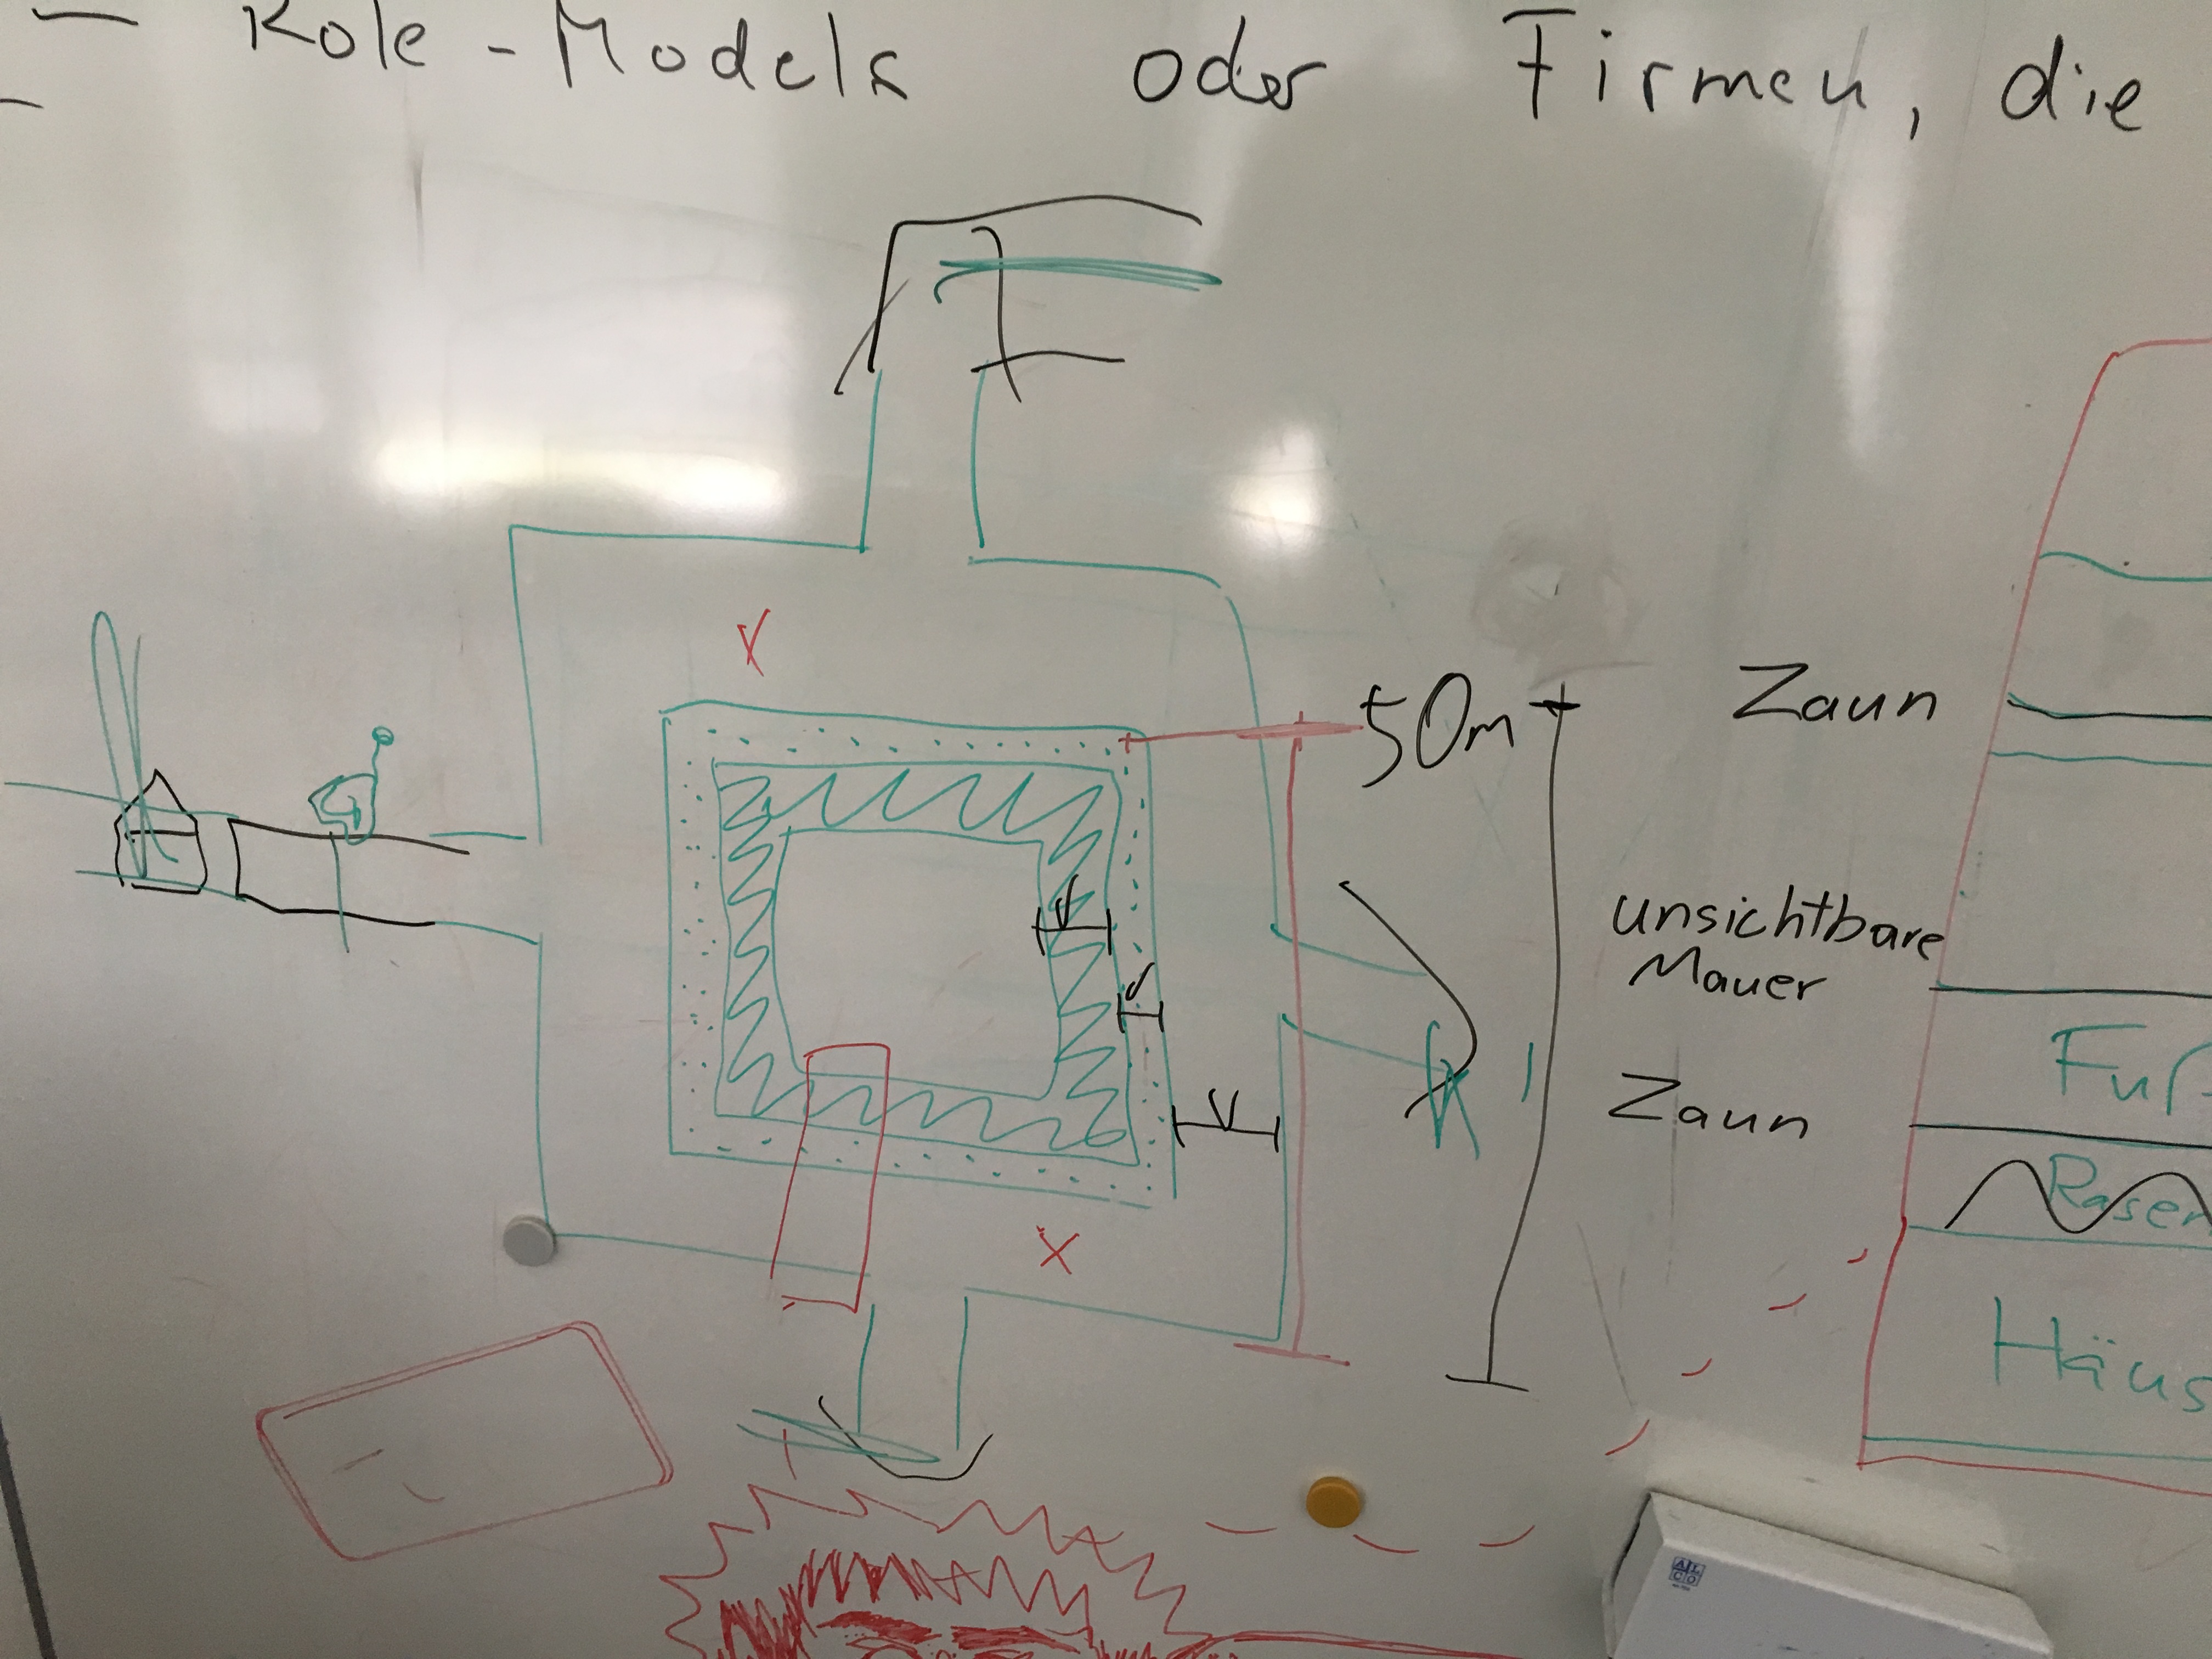 - Role-Models oder Firmen, die
-
50m
Zaun
unsichtbare
Mauer
Zaun
Fuß
Rasen
Häus
ALCO